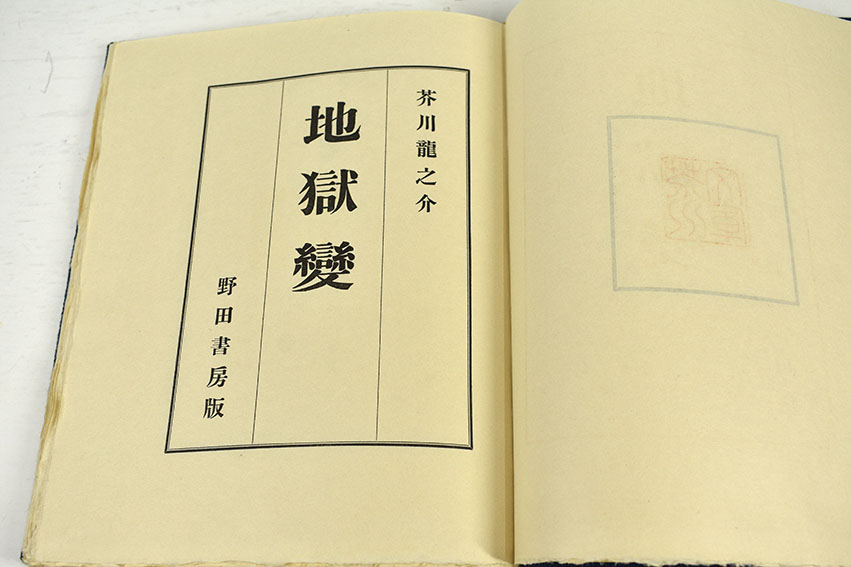 芥川龍之介
地獄變
野田書房版